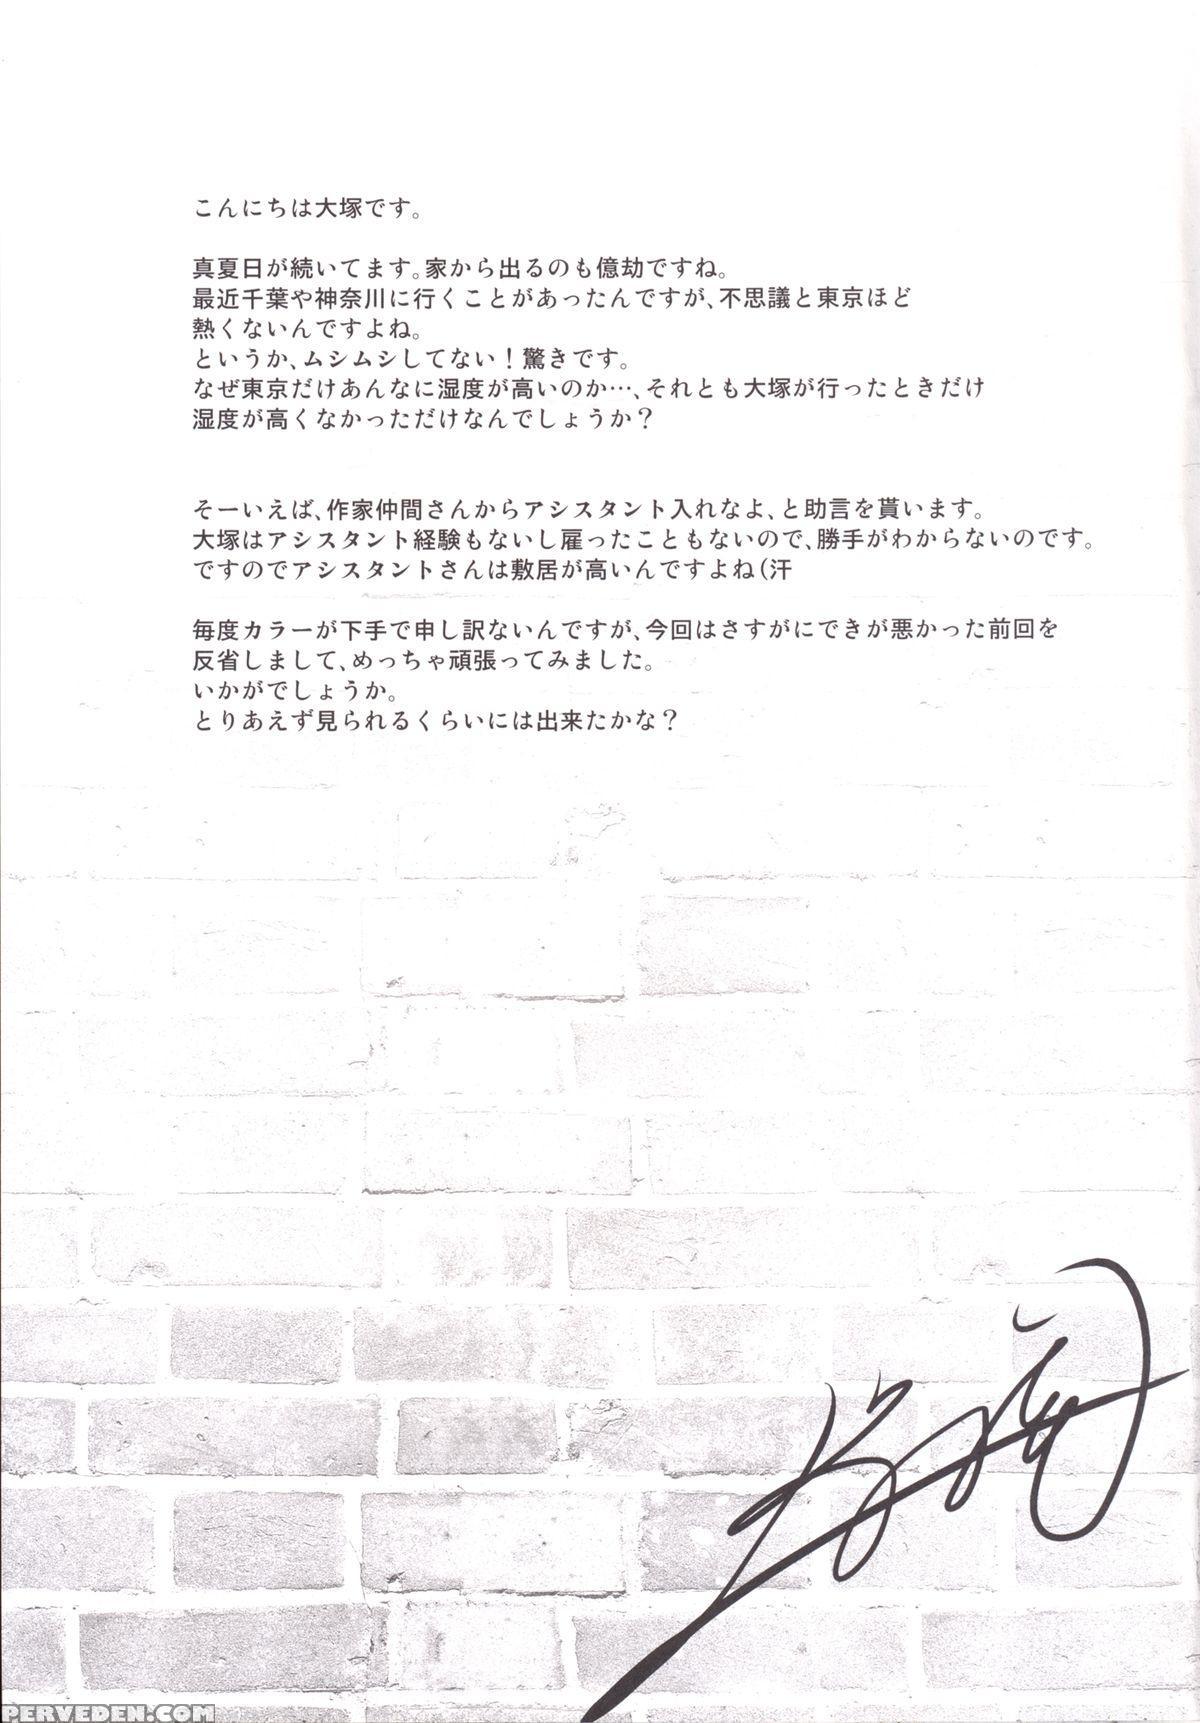 こんにちは大塚です。
真夏日が続いてます。家から出るのも億劫ですね。
最近千葉や神奈川に行くことがあったんですが、不思議と東京ほど
熱くないんですよね。
というか、ムシムシしてない！驚きです。
なぜ東京だけあんなに湿度が高いのか…、それとも大塚が行ったときだけ
湿度が高くなかっただけなんでしょうか？
そーいえば、作家仲間さんからアシスタント入れなよ、と助言を貰います。
大塚はアシスタント経験もないし雇ったこともないので、勝手がわからないのです。
ですのでアシスタントさんは敷居が高いんですよね(汗
毎度カラーが下手で申し訳ないんですが、今回はさすがにできが悪かった前回を
反省しまして、めっちゃ頑張ってみました。
いかがでしょうか。
とりあえず見られるくらいには出来たかな？
PERVEDEN.COM